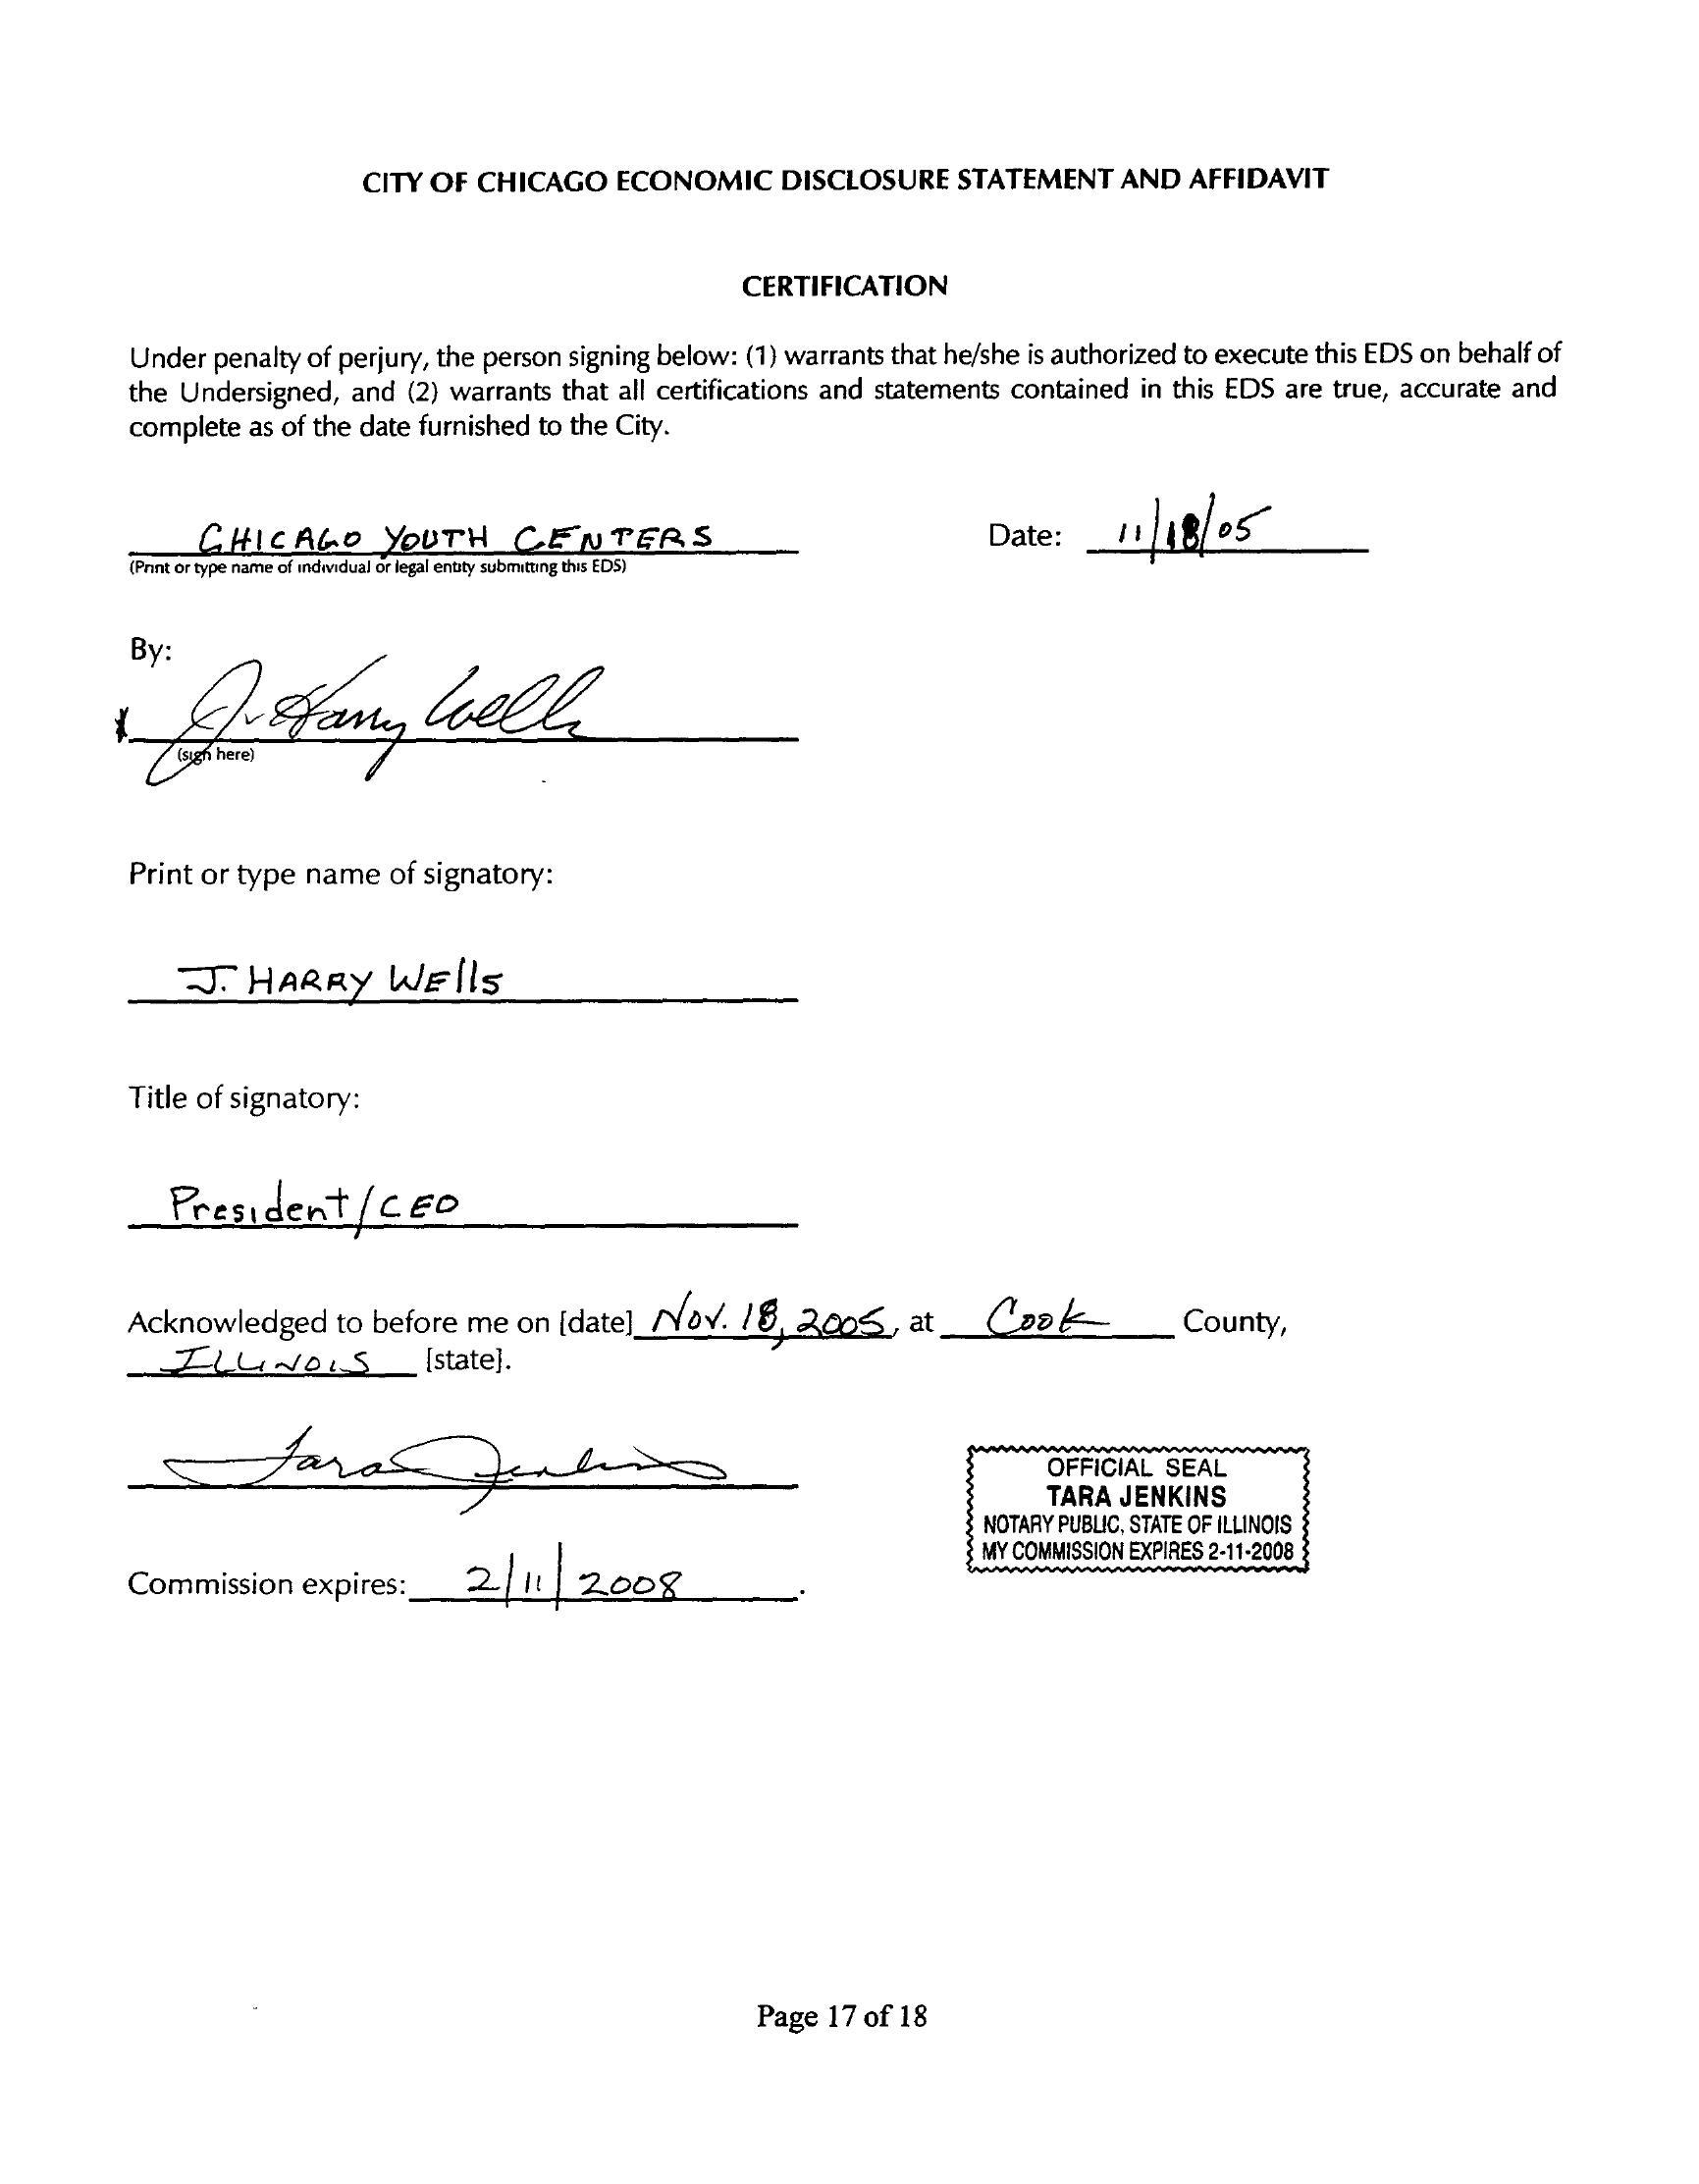 CITY OF CHICAGO ECONOMIC DISCLOSURE STATEMENT AND AFFIDAVIT
CERTIFICATION
Under penalty of perjury, the person signing below: (1) warrants that he/she is authorized to execute this EDS on behalf of
the Undersigned, and (2) warrants that all certifications and statements contained in this EDS are true, accurate and
complete as of the date furnished to the City.
CHICAGO YOUTH CENTERS Date: 11/18/05
(Print or type name of individual or legal entity submitting this EDS)
By:
J. Harry Wells
(sign here)
Print or type name of signatory:
J. HARRY WEllS
Title of signatory:
President/CEO
Acknowledged to before me on [date] Nov. 18, 2005, at Cook County,
ILLINOIS [state].
Tara Jenkins
OFFICIAL SEAL
TARA JENKINS
NOTARY PUBLIC, STATE OF ILLINOIS
MY COMMISSION EXPIRES 2-11-2008
Commission expires: 2/11/2008.
Page 17 of 18